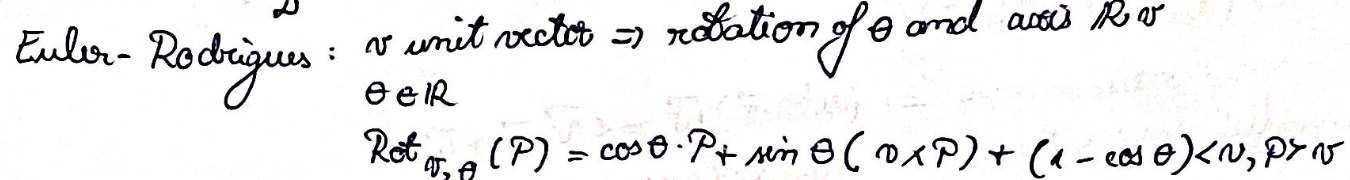 Euler-Rodrigues : v unit vector => rotation of θ and axis ℝv
θ ∈ ℝ
Rot_{v,θ} (P) = cos θ · P + sin θ ( v × P) + (1 - cos θ) <v, P> v